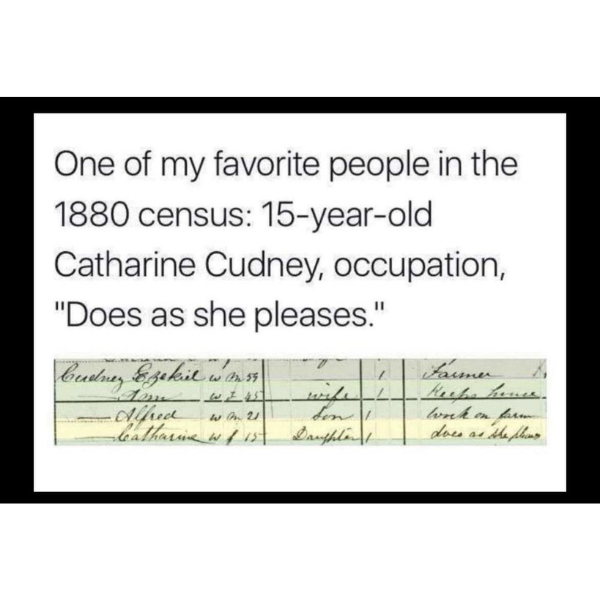 One of my favorite people in the
1880 census: 15-year-old
Catharine Cudney, occupation,
"Does as she pleases."
Cudney Ezekiel w m 59 1 Farmer
w f 45 wife 1 Keeps house
— Alfred w m 21 Son 1 work on farm
— Catharine w f 15 Daughter 1 does as she pleases